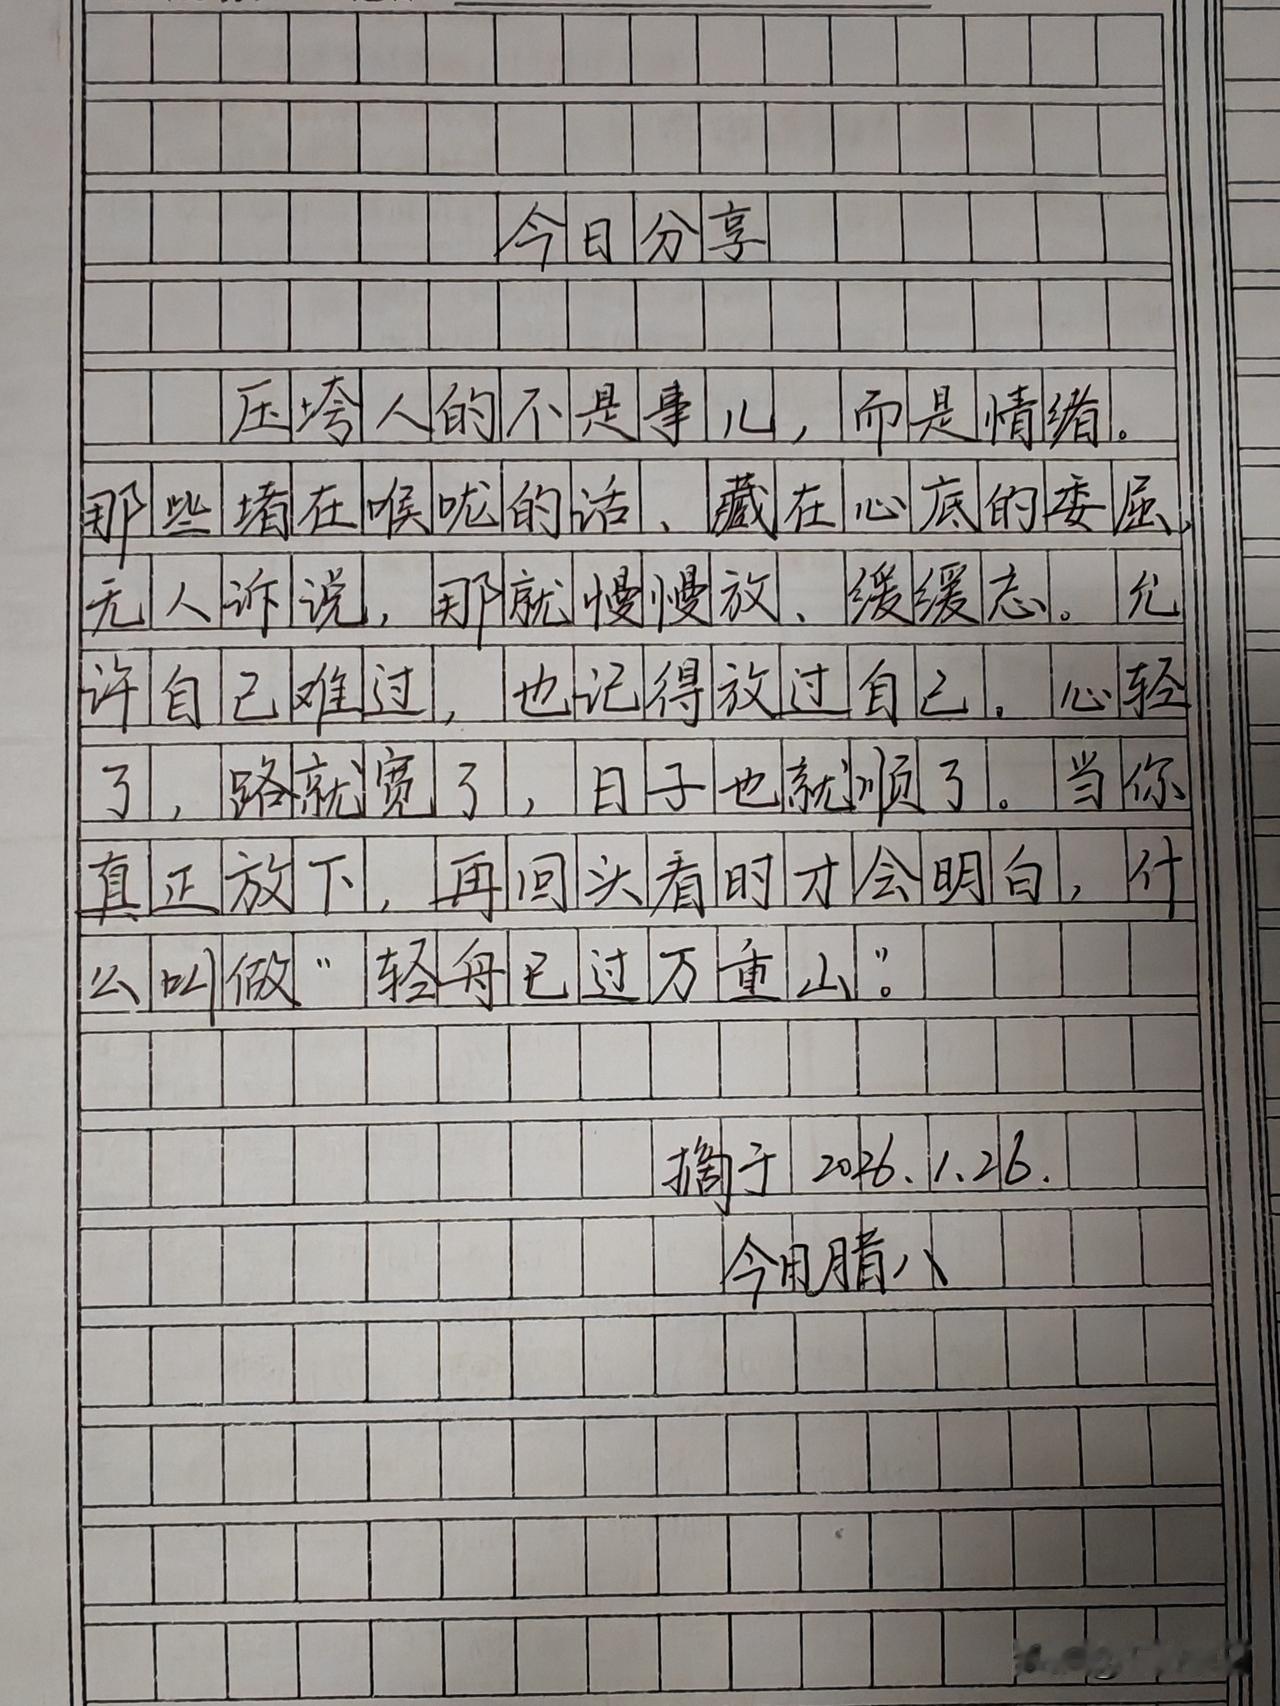 今日分享
压垮人的不是事儿，而是情绪。
那些堵在喉咙的话、藏在心底的委屈，
无人诉说，那就慢慢放、缓缓忘。允
许自己难过，也记得放过自己。心轻
了，路就宽了，日子也就顺了。当你
真正放下，再回头看时才会明白，什
么叫做“轻舟已过万重山”。
摘于 2026.1.26.
今日腊八